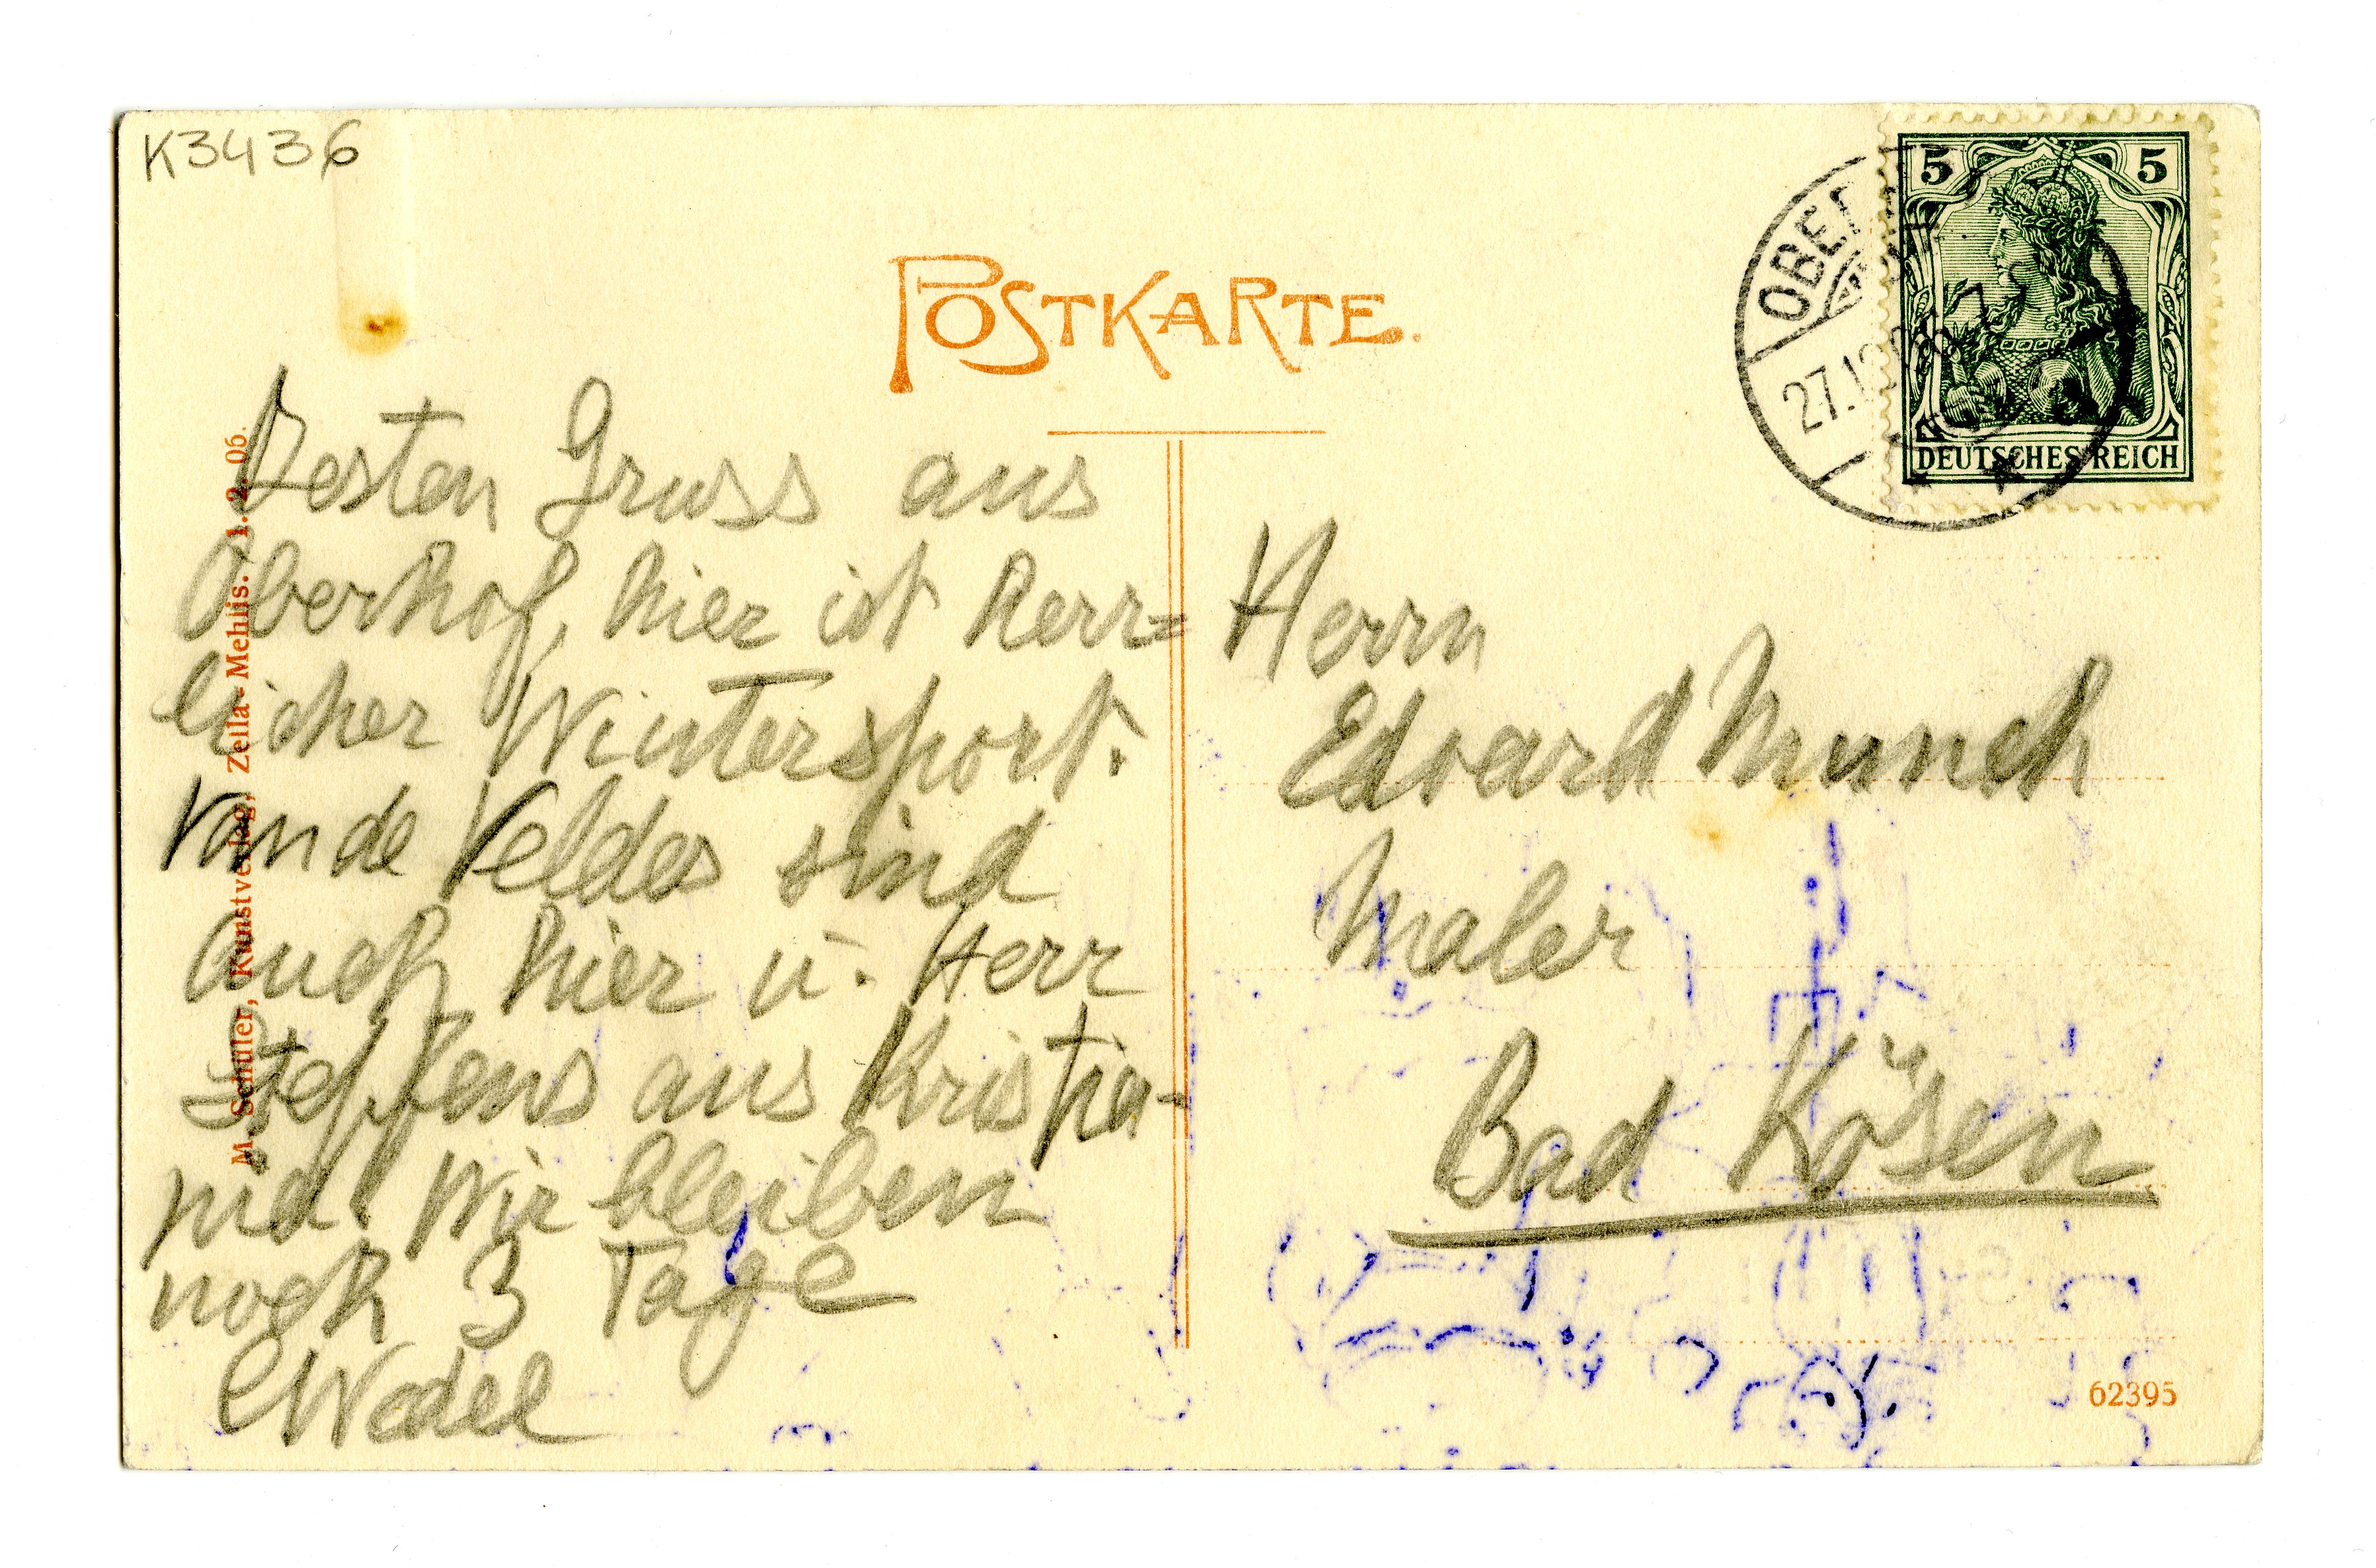 K3436
POSTKARTE.
5 5
DEUTSCHES REICH
27.12.06
Besten Gruss aus
Oberhof, hier ist herr=
licher Wintersport.
Van de Veldes sind
auch hier u. Herr
Steffens aus Kristia-
nia! Wir bleiben
noch 3 Tage
Wedel
Herrn
Edvard Munch
Maler
Bad Kösen
M. Schüler, Kunstverlag, Zella-Mehlis. 1. 2. 06.
62395